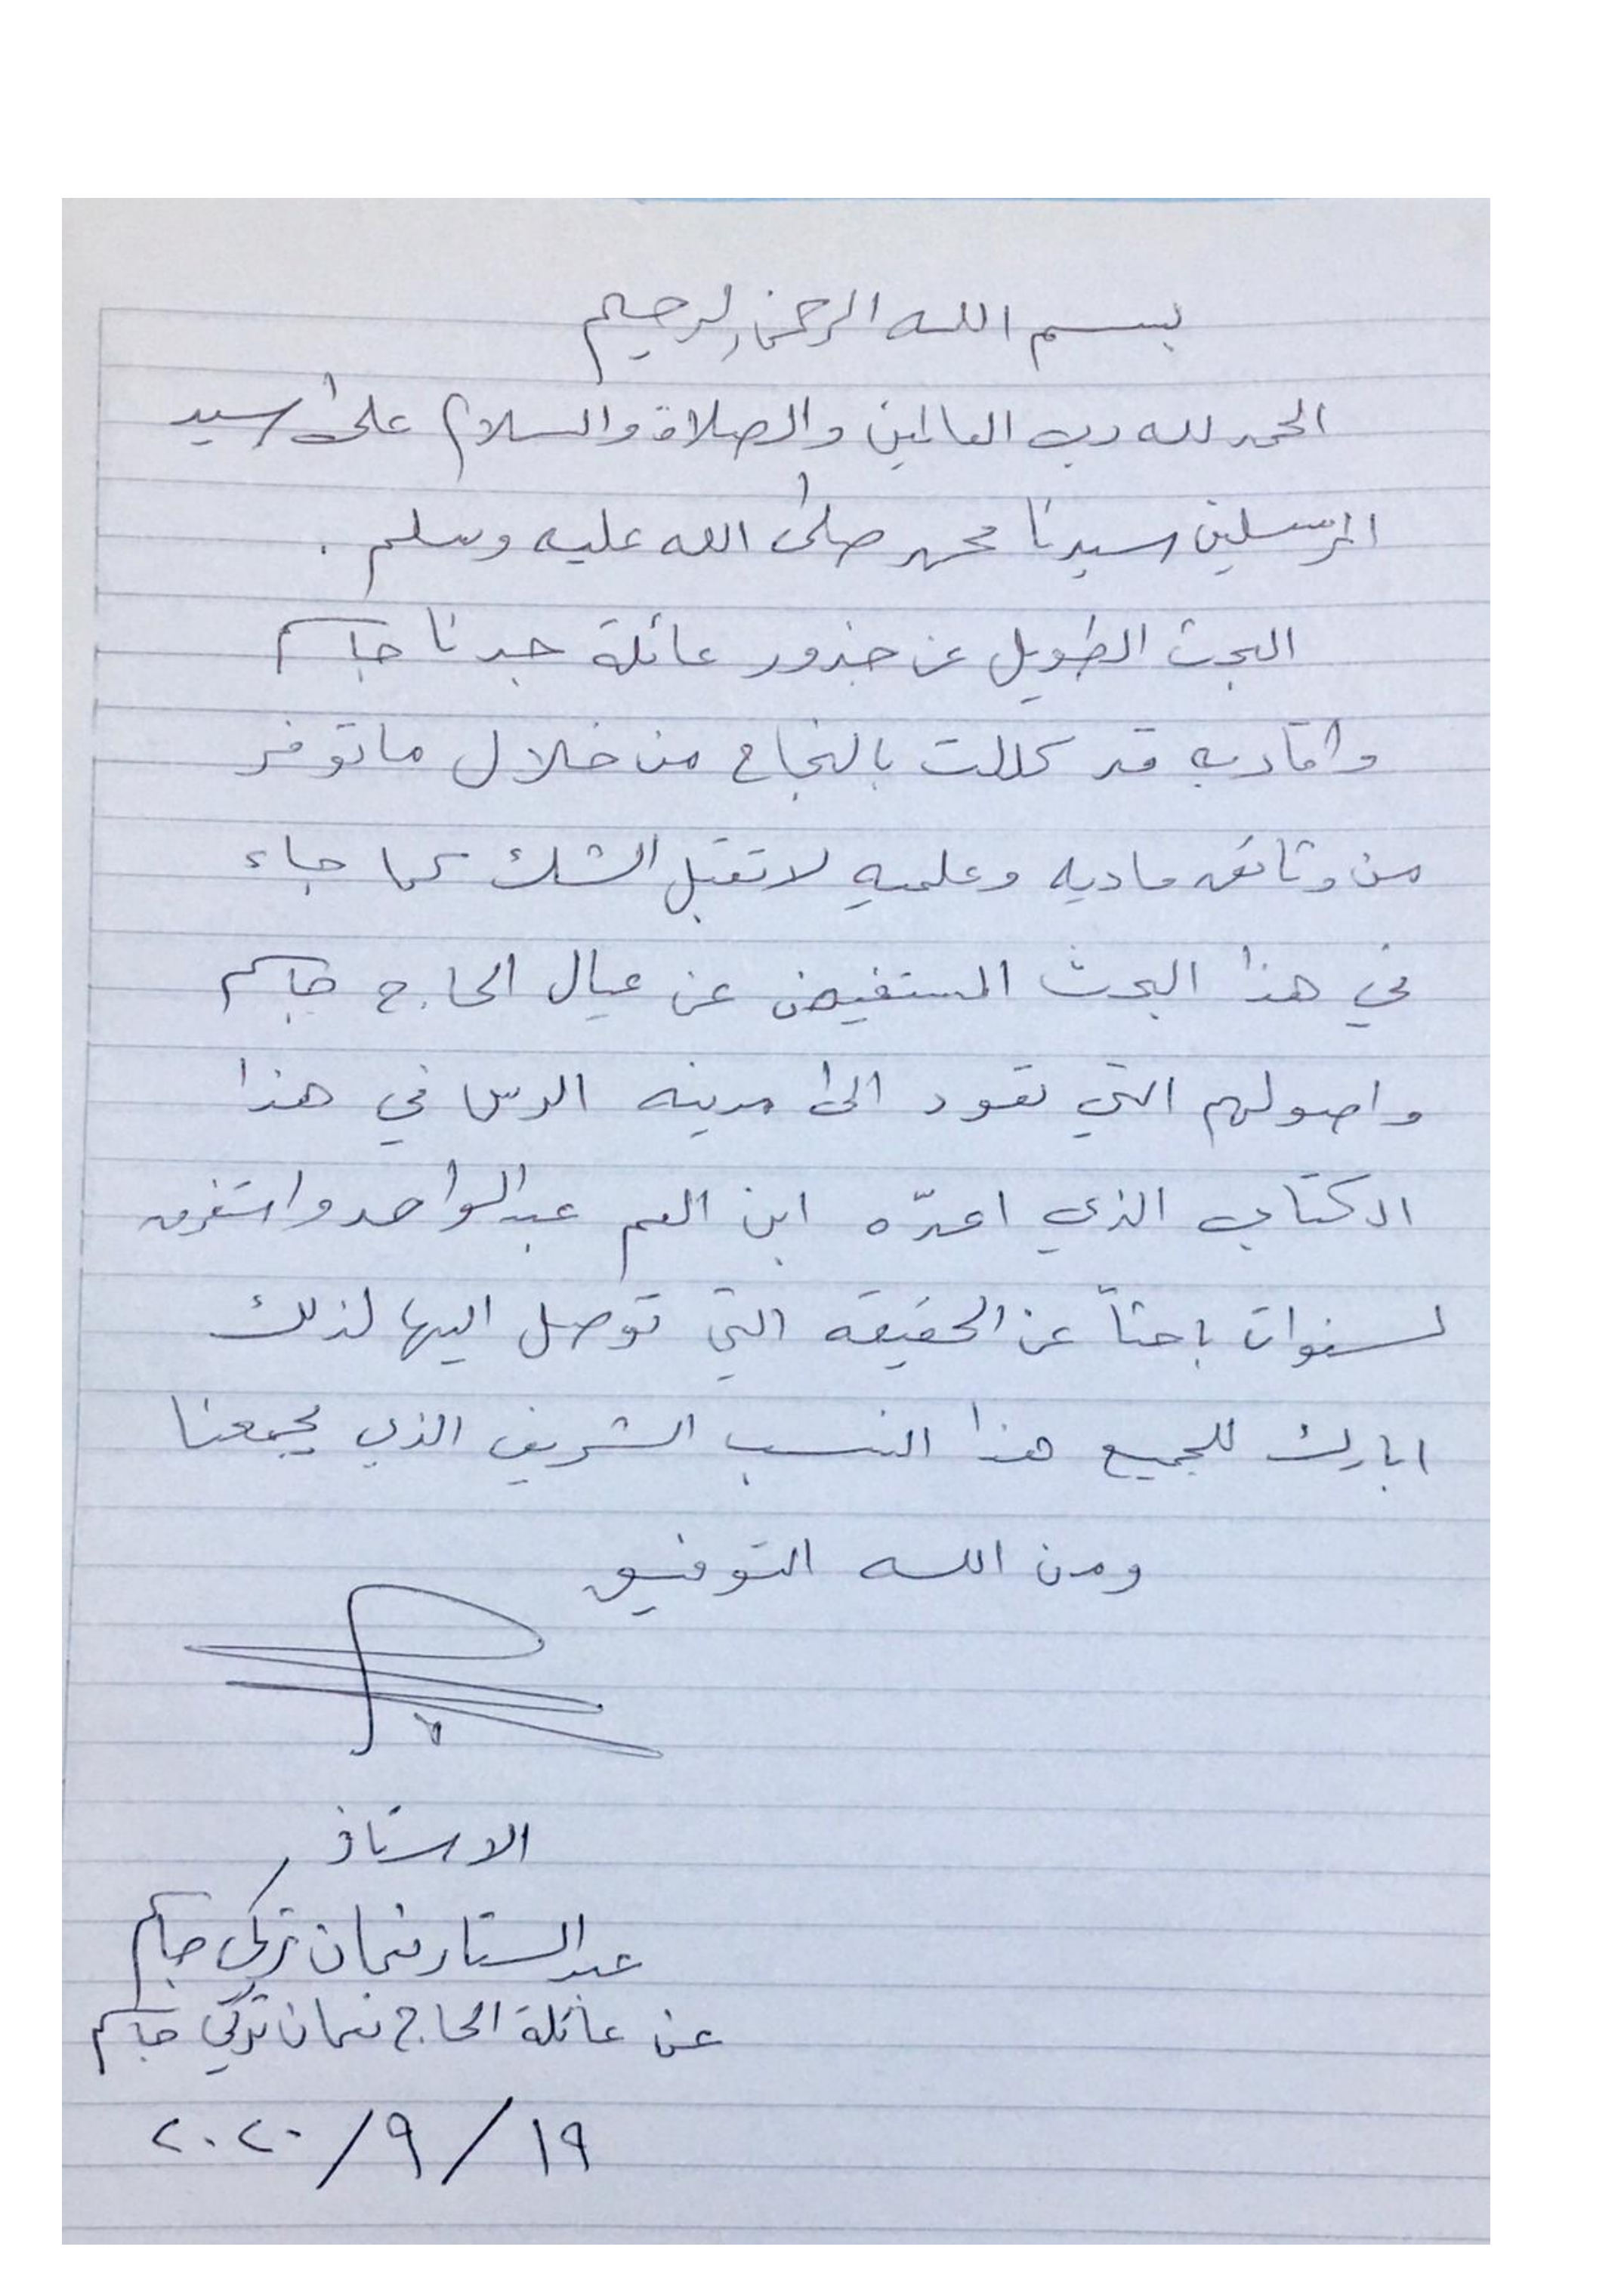 بسم الله الرحمن الرحيم
الحمد لله رب العالمين والصلاة والسلام على سيد
المرسلين سيدنا محمد صلى الله عليه وسلم .
البحث الطويل عن جذور عائلة جدنا جاسم
واقاربه قد كللت بالنجاح من خلال ماتوفر
من وثائق ماديه وعلميه لا تقبل الشك كما جاء
في هذا البحث المستفيض عن عيال الحاج جاسم
واصولهم التي تعود الى مدينه الرس في هذا
الكتاب الذي اعدّه ابن العم عبدالواحد واستغرق
لسنوات باحثاً عن الحقيقه التي توصل اليها لذلك
ابارك للجميع هذا النسب الشريف الذي يجمعنا
ومن الله التوفيق
الاستاذ
عبدالستار نعمان تركي جاسم
عن عائلة الحاج نعمان تركي جاسم
١٩ / ٩ / ٢٠٢٠